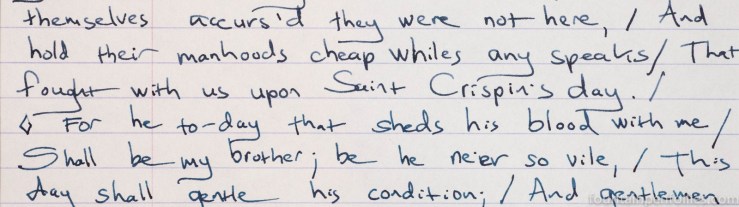 themselves accurs'd they were not here, / And
hold their manhoods cheap whiles any speaks / That
fought with us upon Saint Crispin's day. /
◊ For he to-day that sheds his blood with me /
Shall be my brother; be he ne'er so vile, / This
day shall gentle his condition; / And gentlemen